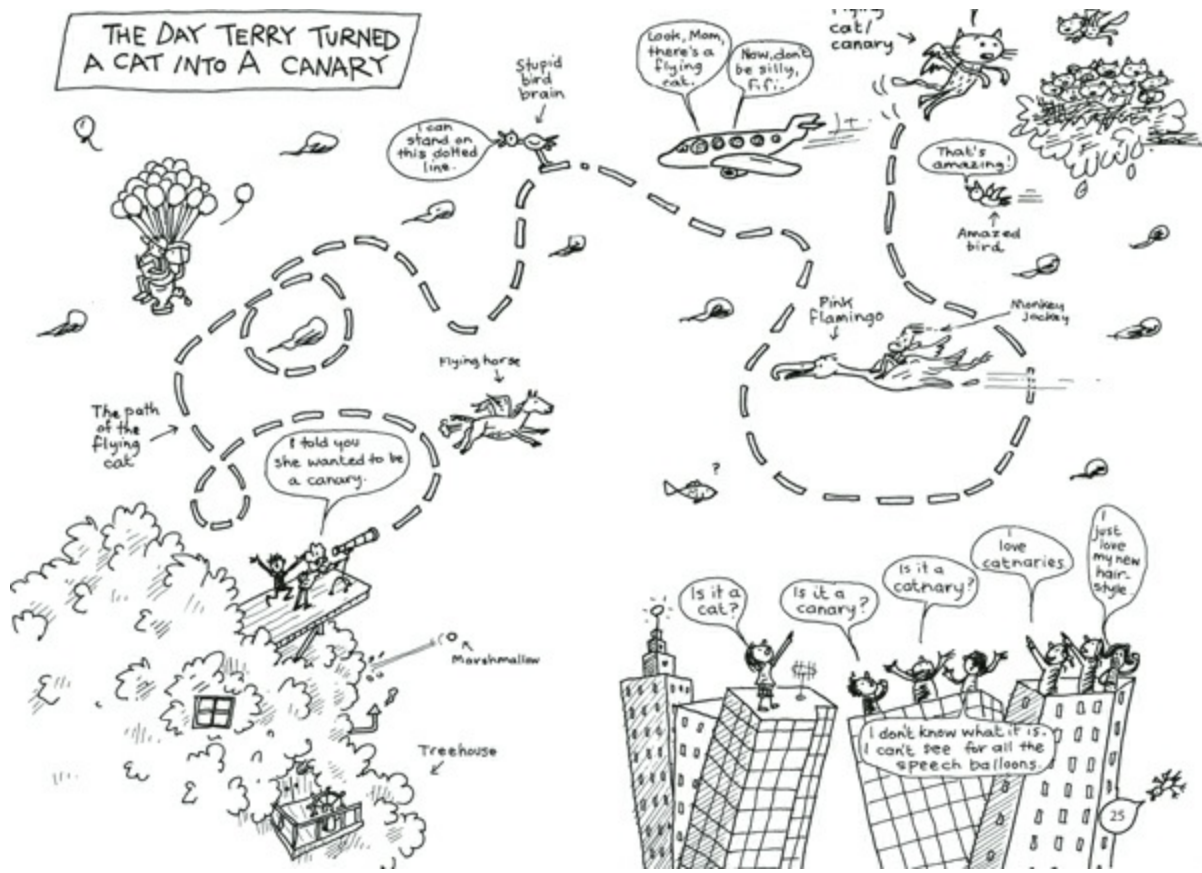 THE DAY TERRY TURNED
A CAT INTO A CANARY
Stupid
bird
brain
I can
stand on
this dotted
line.
Look, Mom,
there's a
flying
cat.
Now, don't
be silly,
Fifi.
Flying
cat/
canary
That's
amazing!
Amazed
bird
Pink
Flamingo
Monkey
Jockey
Flying horse
The path
of the
flying
cat
I told you
she wanted to be
a canary.
?
Marshmallow
Treehouse
Is it a
cat?
Is it a
canary?
Is it a
catnary?
I
love
catnaries.
I
just
love
my new
hair-
style.
I don't know what it is.
I can't see for all the
speech balloons.
25